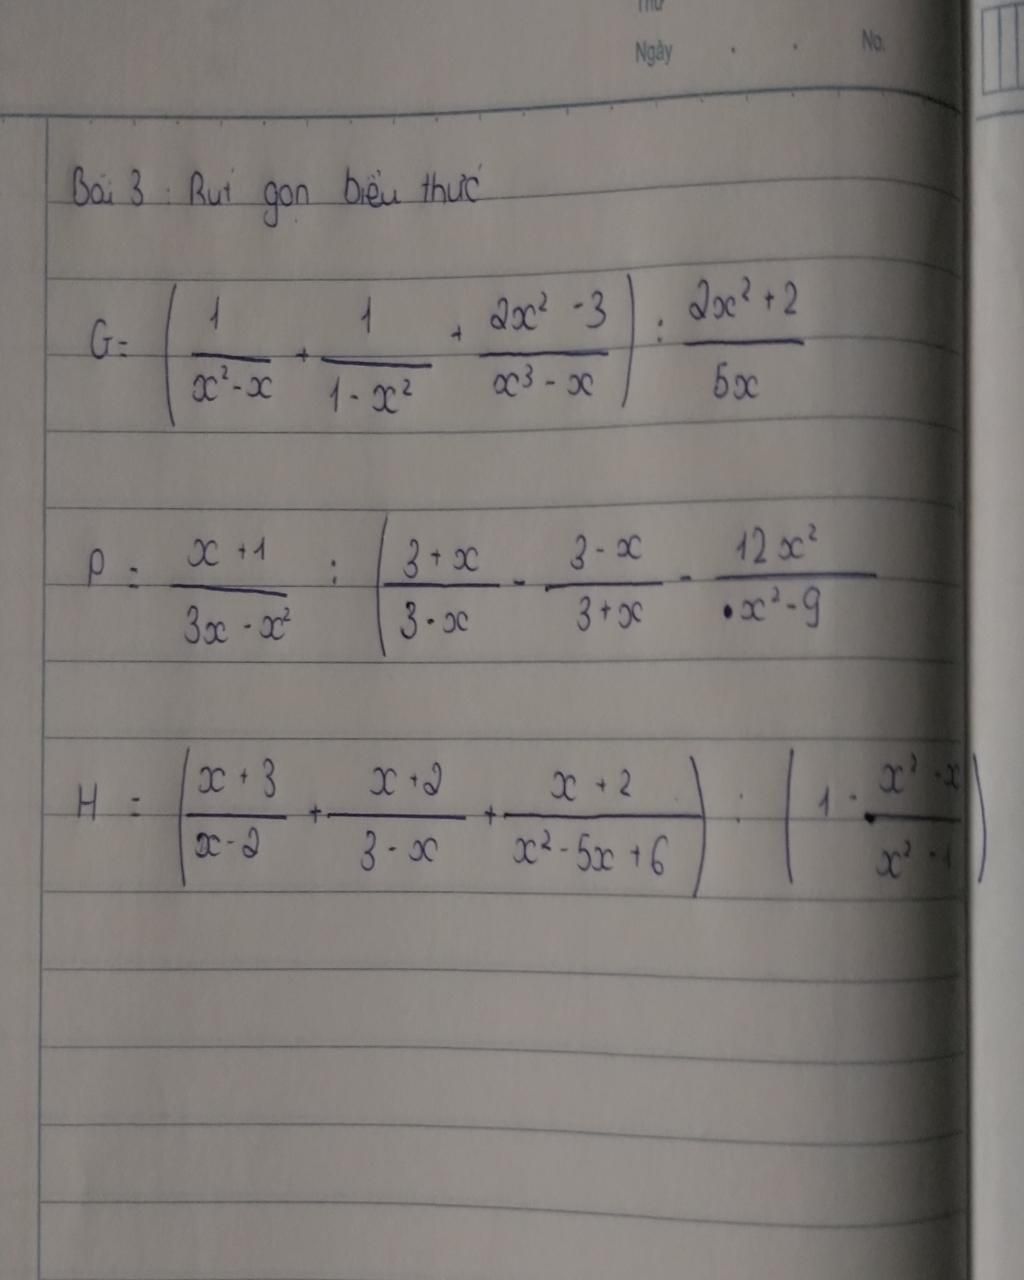 Thứ
Ngày . . No.
Bài 3 : Rút gọn biểu thức
G = (1/(x² - x) + 1/(1 - x²) + (2x² - 3)/(x³ - x)) : (2x² + 2)/(5x)
P = (x + 1)/(3x - x²) : ((3 + x)/(3 - x) - (3 - x)/(3 + x) - (12x²)/(x² - 9)
H = ((x + 3)/(x - 2) + (x + 2)/(3 - x) + (x + 2)/(x² - 5x + 6)) : (1 - (x² - x)/(x² - 1))